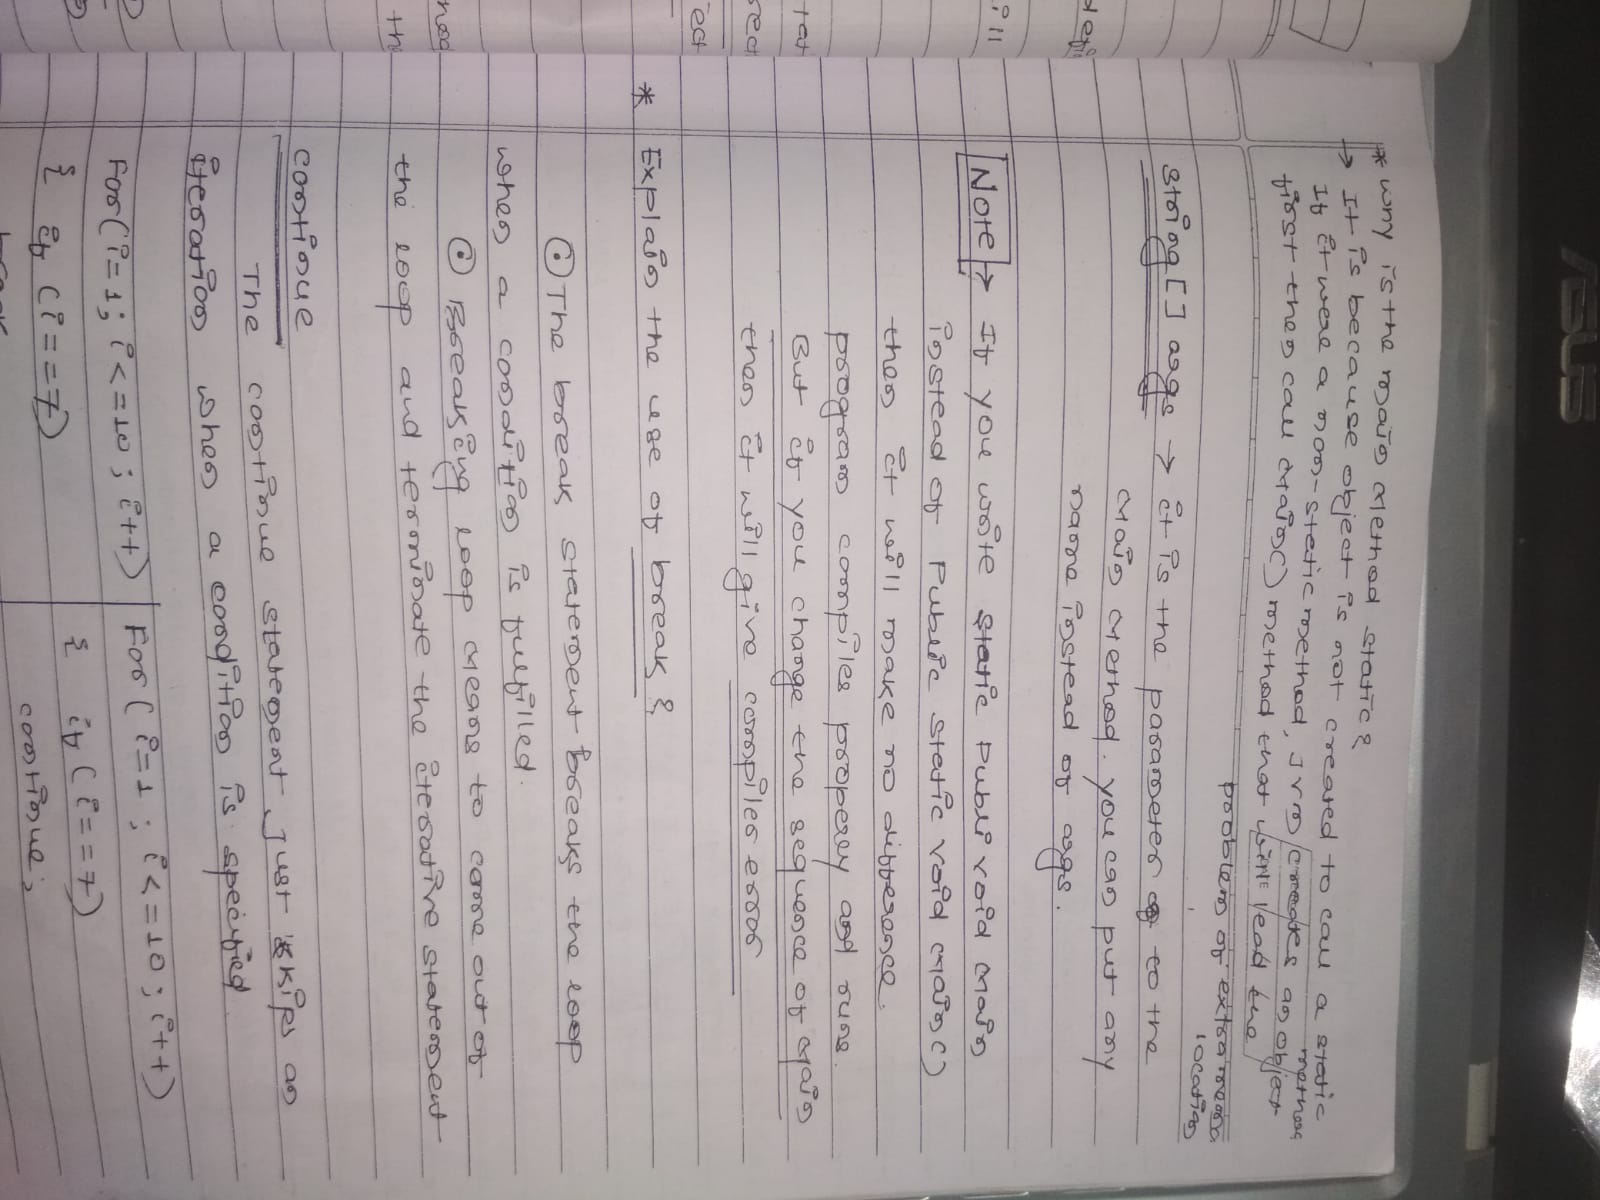 * Why is the main method static?
→ It is because object is not created to call a static method
If it were a non-static method, JVM creates an object
first then call main() method that will lead the
problem of extra memo location
String[] args → it is the parameter to the
main method. you can put any
name instead of args.
Note → If you write static publi void main
instead of Public static void main()
then it will make no difference.
program compiles properly and runs.
But if you change the sequence of main
then it will give compiler error
* Explain the use of break?
⊙ The break statement breaks the loop
when a condition is fulfilled.
⊙ Breaking loop means to come out of
the loop and terminate the iterative statement
continue
The continue statement just skips an
iteration when a condition is specified
For(i=1; i<=10; i++)
{ if (i==7)
break
For(i=1; i<=10; i++)
{ if (i==7)
continue;
ASUS